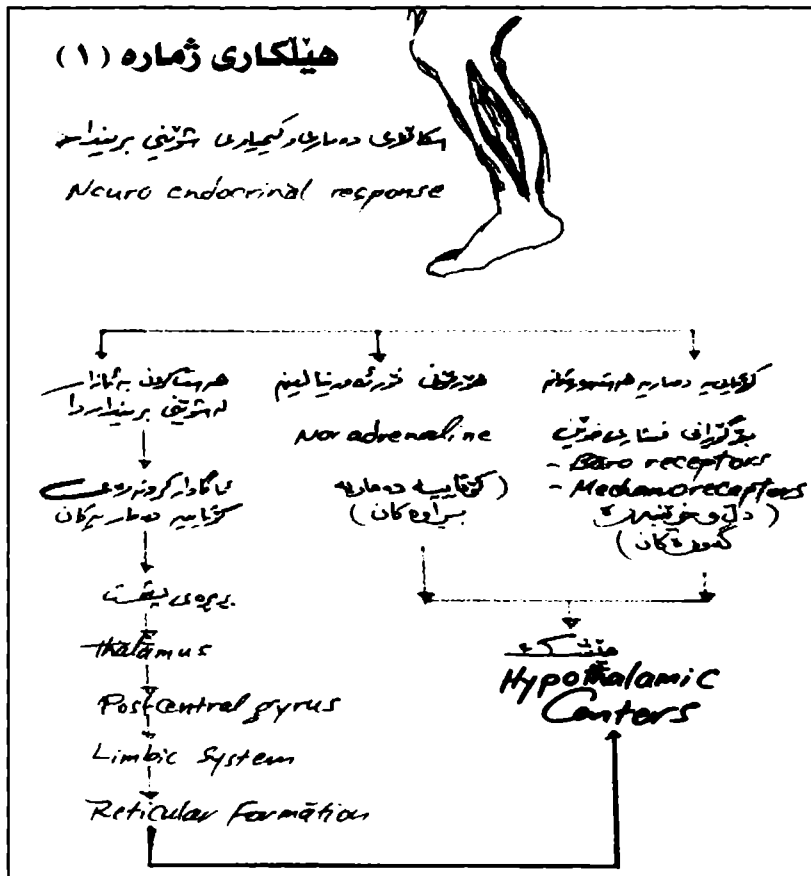 هێڵکاری ژماره (١)
دەماری و کیمیاوی شوێنی بریندار
Neuro endocrinal response
هەست کردن بە ئازار
لە شوێنی بریندار دا
ئاگادار کردنەوەی
کۆتاییە دەماریەکان
بڕبڕەی پشت
Thalamus
Post-central gyrus
Limbic System
Reticular Formation
هۆرمۆنی نۆرئەدرینالین
Nor adrenaline
(کۆتاییە دەماریە
بڕاوەکان)
کۆتایی دەماریە
بۆ گۆڕانی فشاری خوێن
- Baro receptors
- Mechanoreceptors
(دڵ و خوێنبەرە
گەورەکان)
مێشک
Hypothalamic
Centers